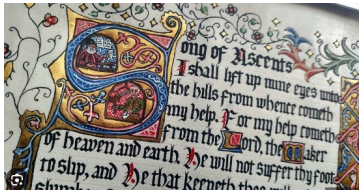 ong of Ascents
I shall lift up mine eyes unto
the hills from whence cometh
my help. For my help cometh
from the Lord, the Maker
of heaven and earth. He will not suffer thy foot
to slip, and he that keepeth thee will